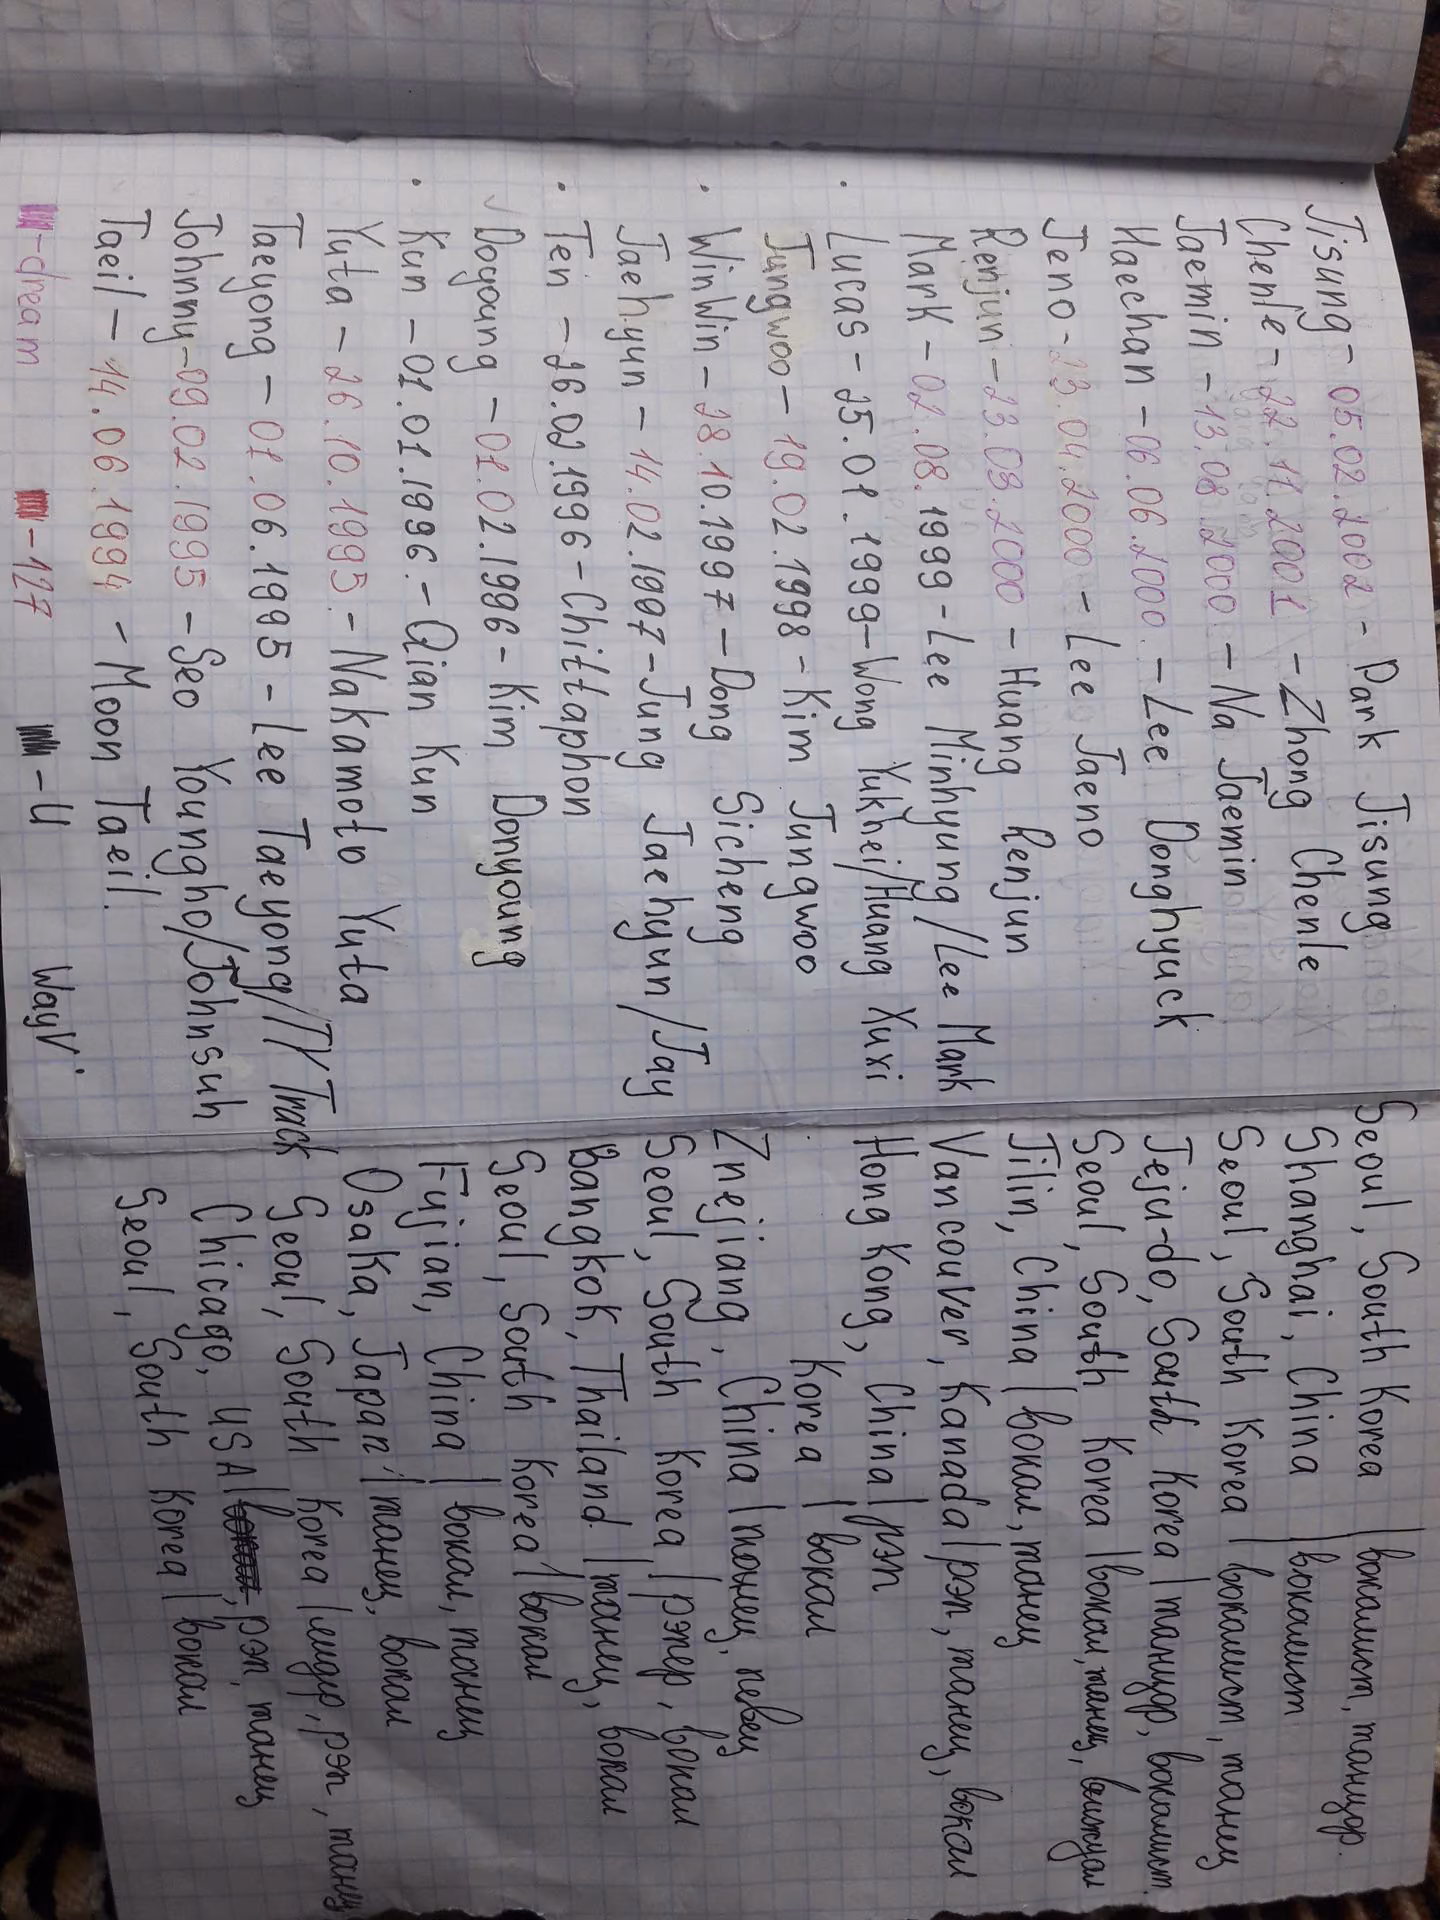 Jisung - 05.02.2002 - Park Jisung Seoul, South Korea | вокалист, танцор.
Chenle - 22.11.2001 - Zhong Chenle Shanghai, China | вокалист
Jaemin - 13.08.2000 - Na Jaemin Seoul, South Korea | вокалист, танец
Haechan - 06.06.2000. - Lee Donghyuck Jeju-do, South Korea | танцор, вокалист.
Jeno - 23.04.2000 - Lee Jaeno Seoul, South Korea | вокал, танец, вижуал
Renjun - 23.03.2000 - Huang Renjun Jilin, China | вокал, танец
Mark - 02.08.1999 - Lee Minhyung/Lee Mark Vancouver, Kanada | рэп, танец, вокал
• Lucas - 25.01.1999 - Wong Yukhei/Huang Xuxi Hong Kong, China | рэп
Jungwoo - 19.02.1998 - Kim Jungwoo Korea | вокал
• WinWin - 28.10.1997 - Dong Sicheng Znejiang, China | танец, певец
Jaehyun - 14.02.1997 - Jung Jaehyun/Jay Seoul, South Korea | рэпер, вокал
• Ten - 26.02.1996 - Chittaphon Bangkok, Thailand | танец, вокал
✓ Doyoung - 01.02.1996 - Kim Donyoung Seoul, South Korea | вокал
• Kun - 01.01.1996. - Qian Kun Fujian, China | вокал, танец
Yuta - 26.10.1995. - Nakamoto Yuta Osaka, Japan | танец, вокал
Taeyong - 01.06.1995 - Lee Taeyong/TY Track Seoul, South Korea | лидер, рэп, танец
Johnny - 09.02.1995 - Seo Youngho/Johnsuh Chicago, USA | рэп, танец
Taeil - 14.06.1994 - Moon Taeil. Seoul, South Korea | вокал
- dream - 127 - U WayV •